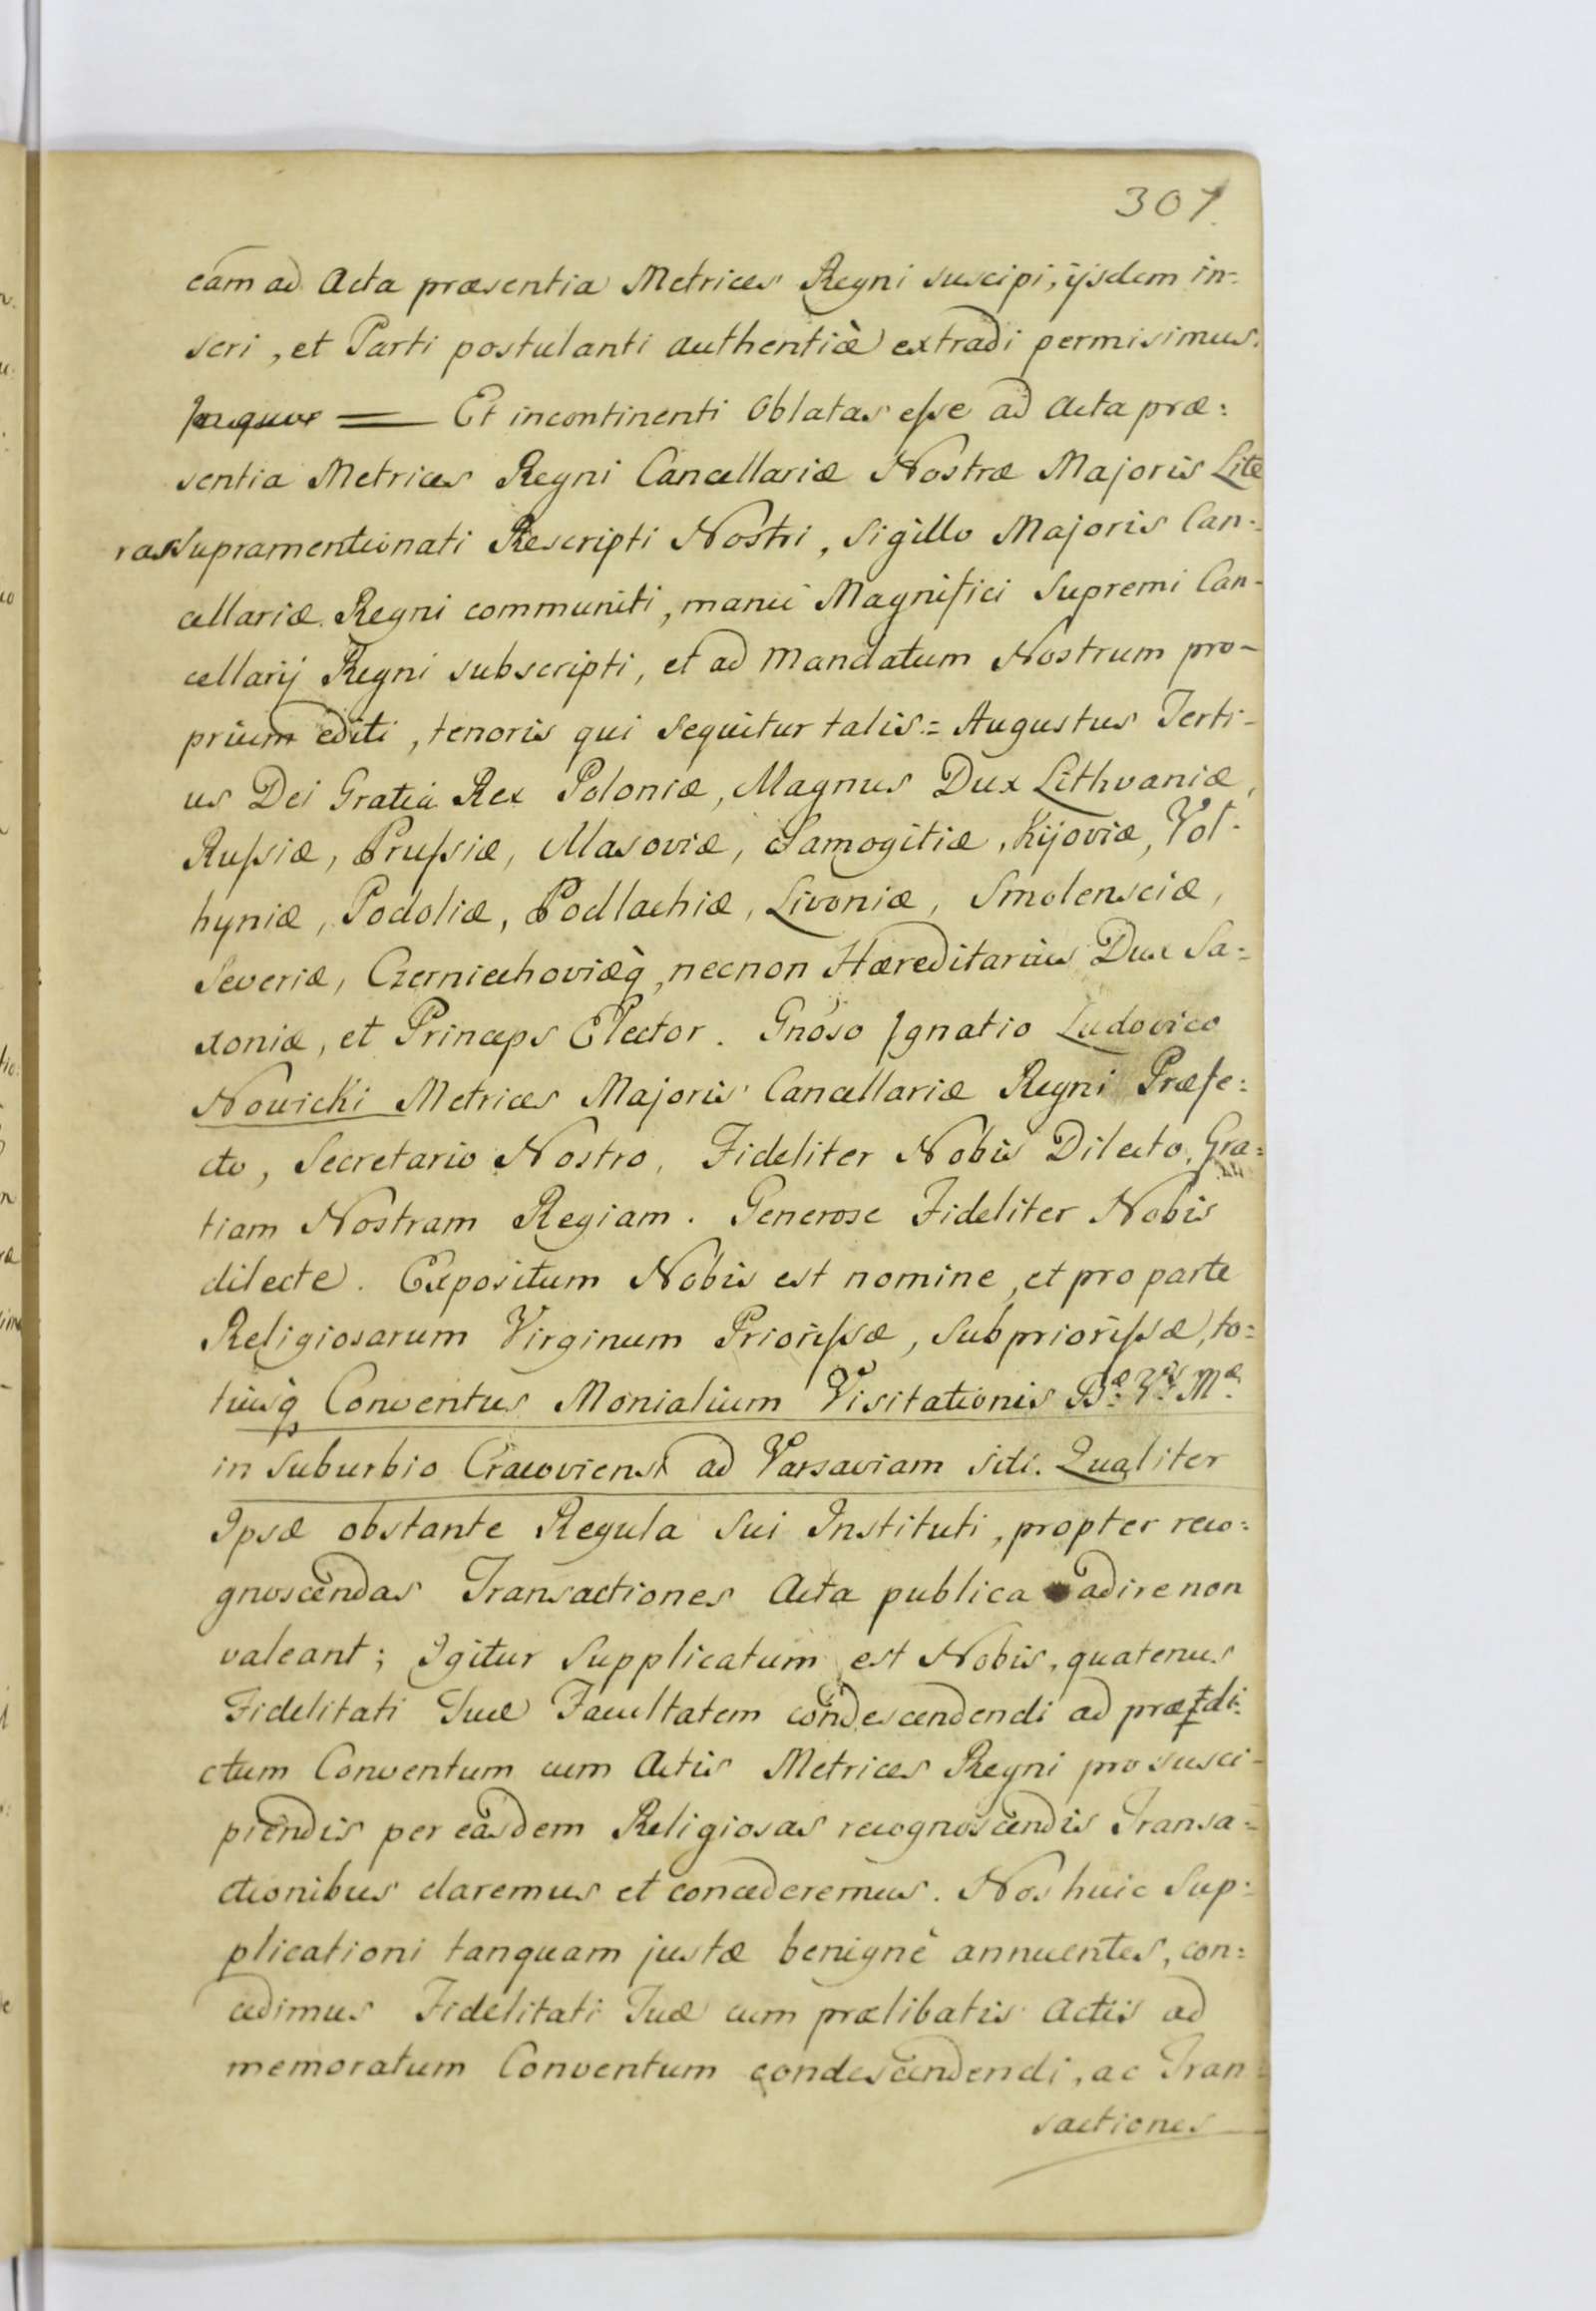 307.
eam ad Acta præsentia Metrices Regni suscipi, ijsdem in=
seri, et Parti postulanti authenticè extradi permisimus.
In quor == Et incontinenti Oblatas eſse ad Acta præ=
sentia Metrices Regni Cancellariæ Nostræ Majoris Lite
ras Supramentionati Rescripti Nostri, Sigillo Majoris Can=
cellariæ Regni communiti, manu Magnifici Supremi Can-
cellarij Regni subscripti, et ad Mandatum Nostrum pro-
prium editi, tenoris qui sequitur talis = Augustus Terti-
us Dei Gratia Rex Poloniæ, Magnus Dux Lithvaniæ,
Ruſsiæ, Pruſsiæ, Masoviæ, Samogitiæ, Kijoviæ, Vol-
hyniæ, Podoliæ, Podlachiæ, Livoniæ, Smolensciæ,
Severiæ, Czerniechoviæq̀, necnon Hæreditarius Dux Sa=
xoniæ, et Princeps Elector. Gnoso Ignatio Ludovico
Nowicki Metrices Majoris Cancellariæ Regni Præfe=
cto, Secretario Nostro, Fideliter Nobis Dilecto. Gra=
tiam Nostram Regiam. Generose Fideliter Nobis
dilecte. Expositum Nobis est nomine, et pro parte
Religiosarum Virginum Prioriſsæ, Subprioriſsæ, to=
tiusq̀ Conventus Monialium Visitationis Bæ Vis Mæ
in Suburbio Cracoviensi ad Varsaviam siti. Qualiter
Ipsæ obstante Regula Sui Instituti, propter reco=
gnoscendas Transactiones Acta publica adire non
valeant; Igitur Supplicatum est Nobis, quatenus
Fidelitati Tuæ Facultatem condescendendi ad prædi=
ctum Conventum cum Actis Metrices Regni pro susci-
piendis per easdem Religiosas recognoscendis Transa=
ctionibus daremus et concederemus. Nos huic Sup=
plicationi tanquam justæ benignè annuentes, con=
cedimus Fidelitati Tuæ cum prælibatis Actis ad
memoratum Conventum condescendendi, ac Tran=
sactiones